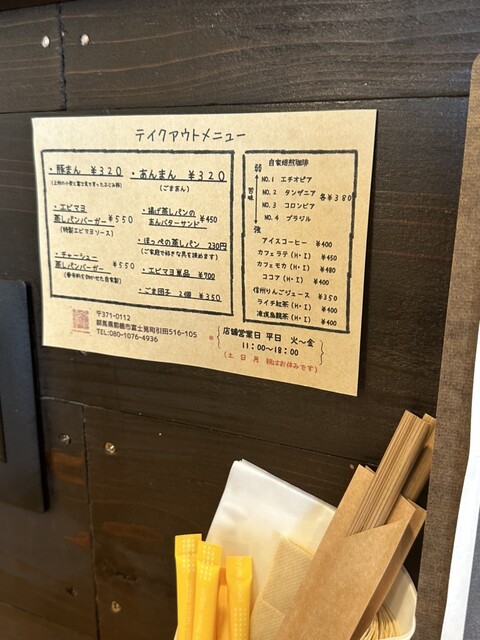 テイクアウトメニュー
・豚まん ￥320
・あんまん ￥320
(ごまあん)
・エビマヨ
蒸しパンバーガー ￥550
(特製エビマヨソース)
・揚げ蒸しパンの
あんバターサンド ￥450
・ほっぺの蒸しパン 230円
(ご家庭で好きな具を挟めます)
・チャーシュー
蒸しパンバーガー ￥550
・エビマヨ単品 ￥700
・ごま団子 2個 ￥350
自家焙煎珈琲
弱
苦味
強
NO.1 エチオピア
NO.2 タンザニア
各￥380
NO.3 コロンビア
NO.4 ブラジル
アイスコーヒー ￥400
カフェラテ(H・I) ￥450
カフェモカ(H・I) ￥480
ココア(H・I) ￥400
信州りんごジュース ￥350
ライチ紅茶(H・I) ￥400
凍頂烏龍茶(H・I) ￥400
〒371-0112
群馬県前橋市富士見町引田516-105
TEL:080-1076-4936
※
店舗営業日 平日 火～金
11:00～18:00
(土 日 月 祝はお休みです)